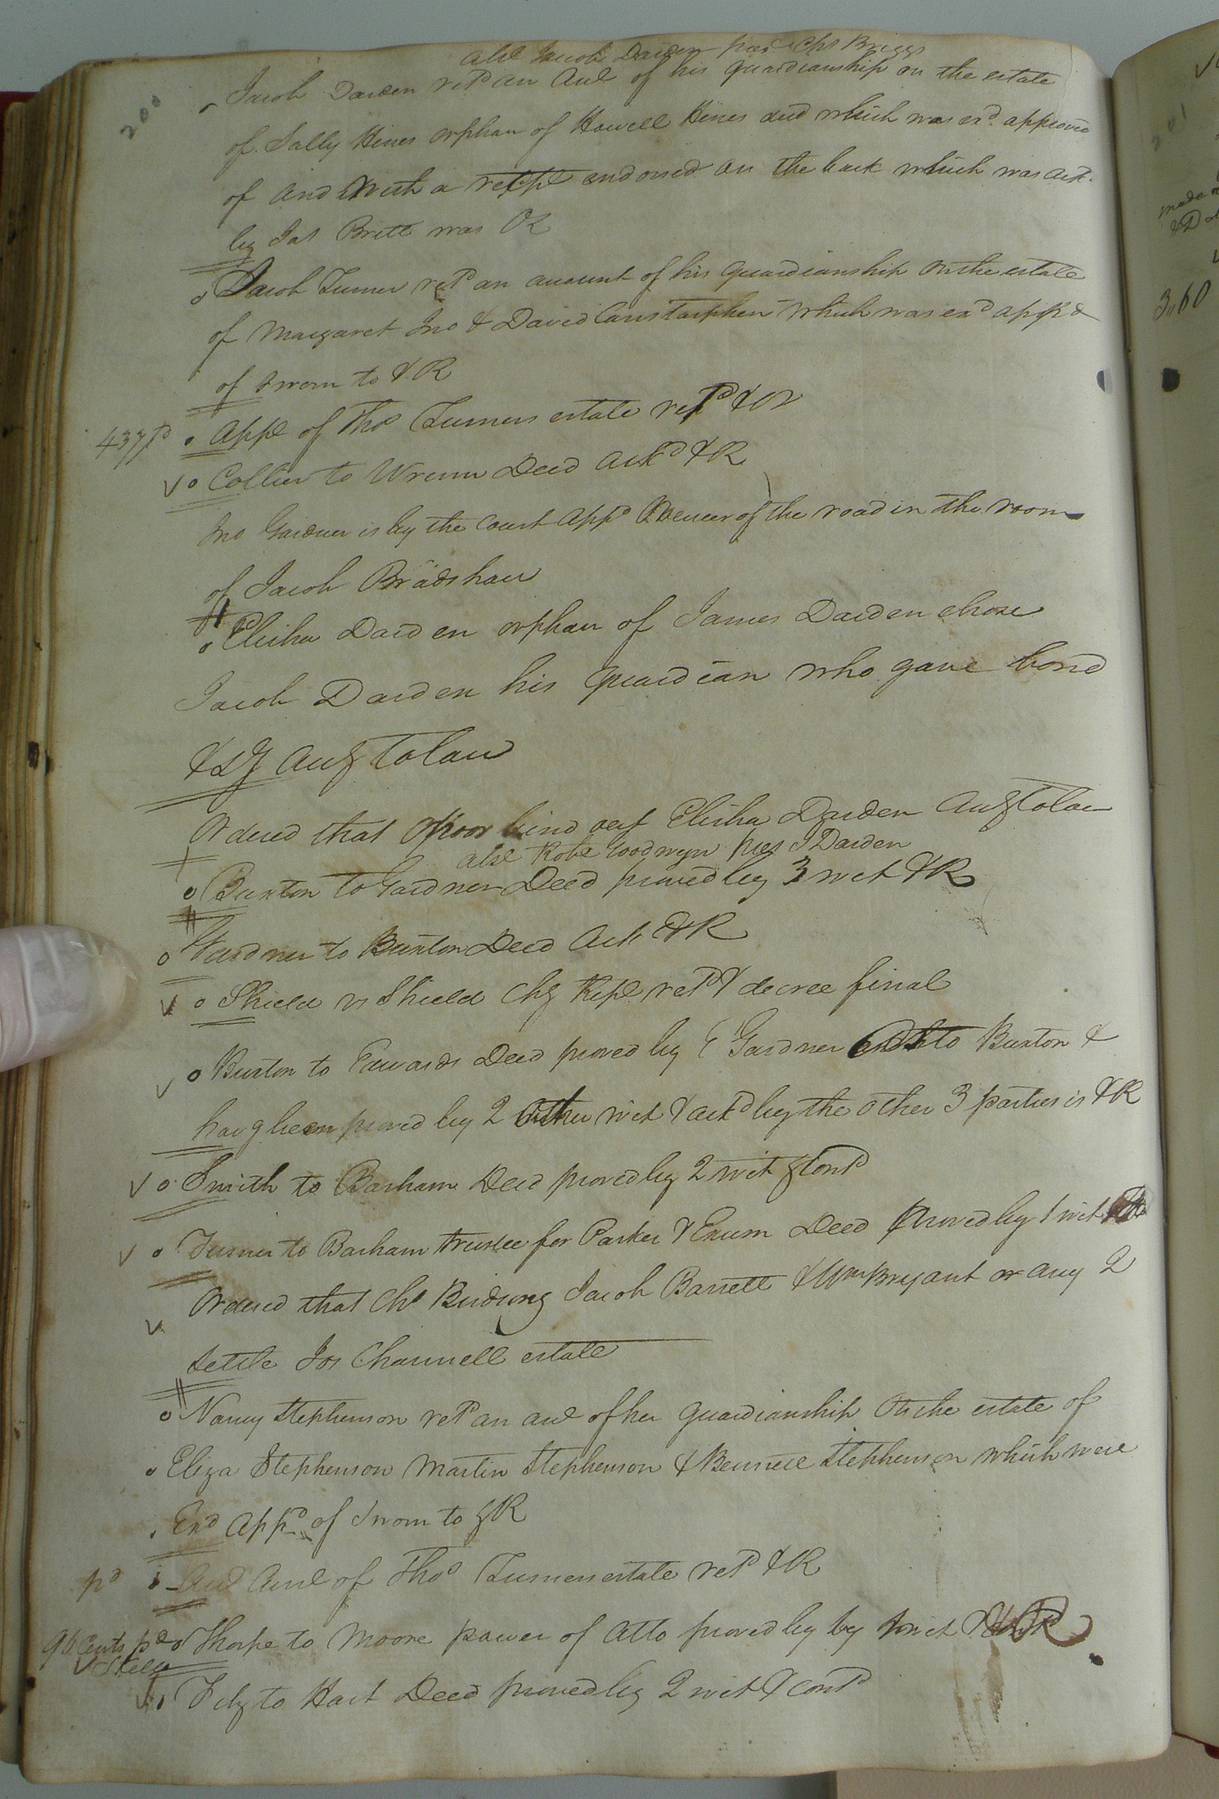 200
abs Jacob Darden pres Chs Briggs
Jacob Darden retd an Aud of his guardianship on the estate
of Sally Hines orphan of Howell Hines and which was exd approvd
of and with a endorsed on the back which was ack
by Jas Britt was OR
Jacob Turner retd an account of his guardianship on the estate
of Margaret Jno & David which was exd appd
of sworn to & R
437 pd Appt of Thos Turners estate retd & OR
Collier to Wrenn Deed Ackd & R
Jno Gardner is by the court appd of the road in the room
of Jacob Bradshaw
Elisha Darden orphan of James Darden chose
Jacob Darden his guardian who gave bond
& Sy Aug to law
Ordered that Opoor bind out Elisha Darden Aug to law
abs Robt Goodwyn pres J Darden
Buxton to Gardner Deed proved by 3 wit & R
Gardner to Buxton Deed Ack & R
Shield vs Shield Chy Rept retd & decree final
Buxton to Edwards Deed proved by Gardner to Buxton &
havg been proved by 2 other wit & ackd by the other 3 parties is & R
Smith to Barham Deed proved by 2 wit & Contd
Turner to Barham trustee for Parker & Exum Deed proved by 1 wit
Ordered that Chs Jacob Barrett & Wm Bryant or any 2
settle Jos Channell estate
Nancy Stephenson retd an aud of her guardianship on the estate of
Eliza Stephenson Martin Stephenson & Bennett Stephenson which were
Exd Appd of Sworn to & R
pd Aud of Thos Turners estate retd & R
96 Cents pd Thorpe to Moore power of Atto proved by by wit & R
to Hart Deed proved by 2 wit & contd
201
made
3,60